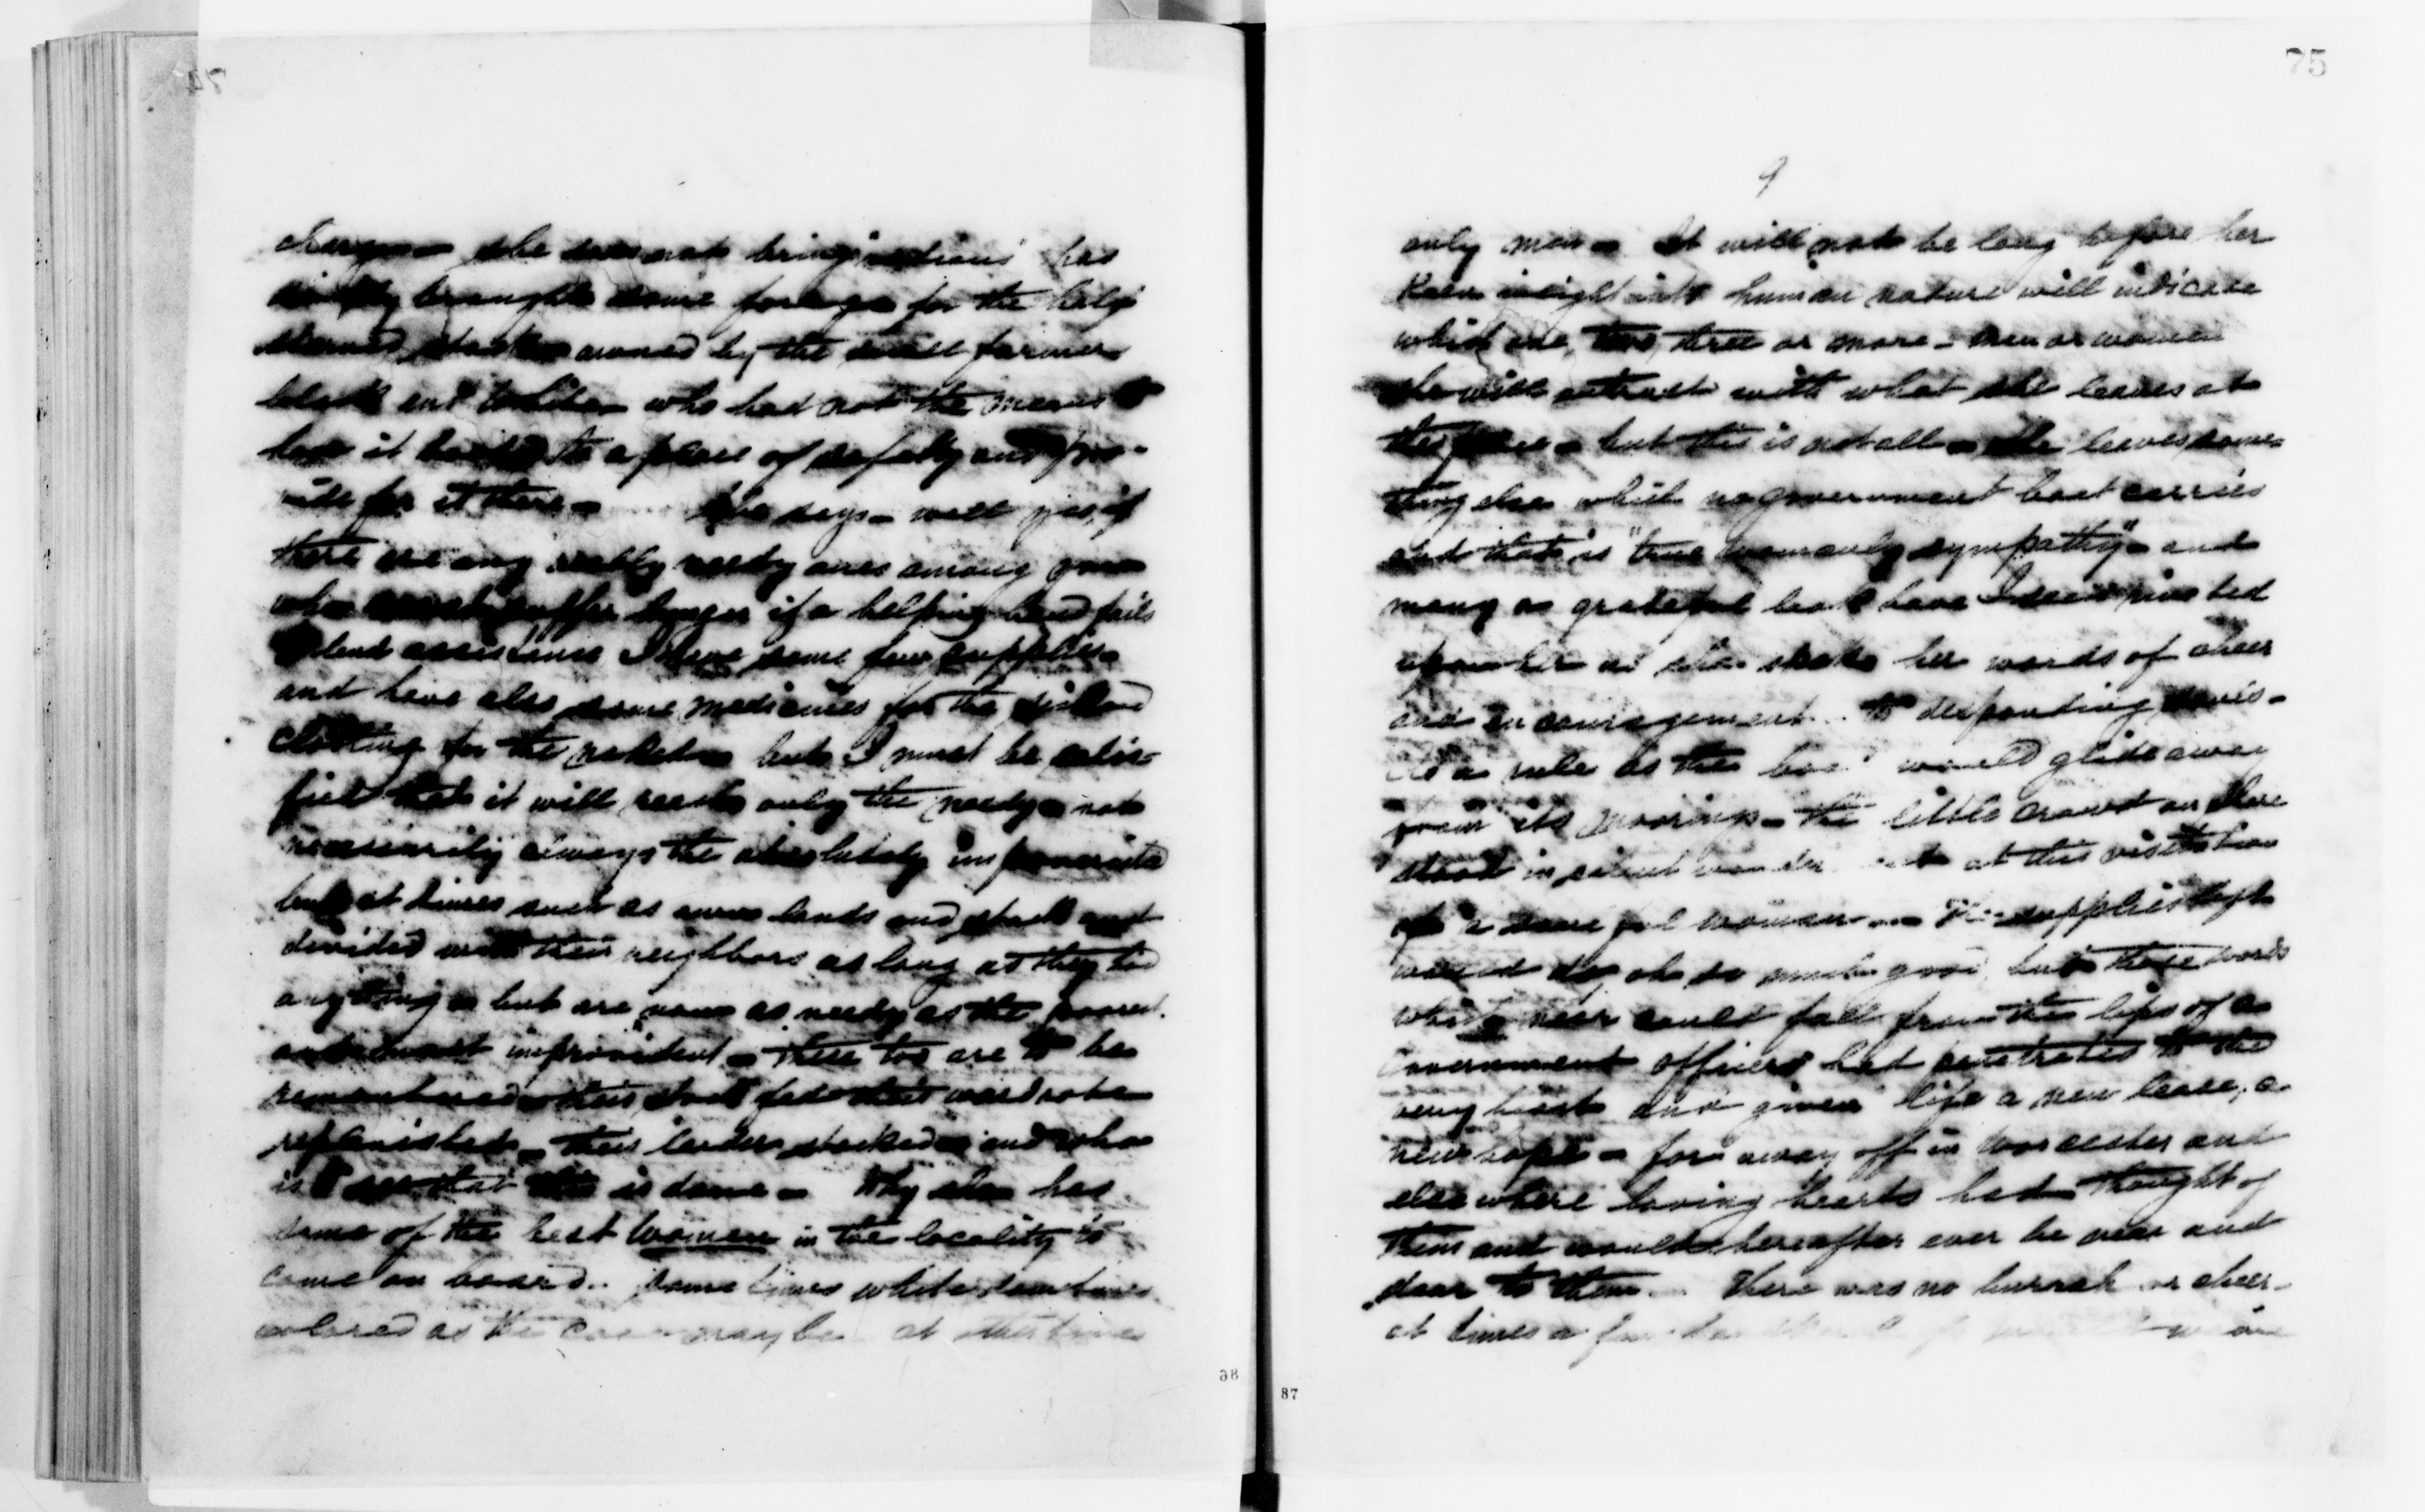 she does not bring rations has
brought some forage for the half
starved stock owned by the small farmers
black and white who had not the means to
have it to a place of safety and pro-
vide for it there - She says - well yes, if
there are any really needy ones among you
who must suffer longer if a helping hand fails
to lend assistance I have some few supplies
and have also some medicines for the sick and
clothing for the naked - but I must be satis-
fied that it will reach only the needy - not
necessarily always the absolutely impoverished
but at times such as own lands and stock and
divided with their neighbors as long as they had
anything - but are now as needy as the poorest
and most improvident - These too are to be
remembered - their stock fed - their wardrobe
replenished - their larder stocked - and who
is to see that this is done - Why she has
some of the best women in the locality to
come on board - sometimes white sometimes
colored as the case may be at other times
75
9
only men - It will not be long before her
keen insight into human nature will indicate
which one, two, three or more - men or women
she will entrust with what she leaves at
the place - but this is not all - She leaves some-
thing else which no government boat carries
and that is "true womanly sympathy" and
many a grateful look have I seen riveted
upon her as she spoke her words of cheer
and encouragement - to desponding souls -
As a rule as the boat would glide away
from its moorings - the little crowd on shore
stood in silent at this visitation
of a woman - The supplies left
would do, oh so much good, but those words
which never could fall from the lips of a
Government officer had penetrated to the
very heart and given life a new lease, a
new hope - for away off in Worcester and
elsewhere loving hearts had thought of
them and would hereafter ever be near and
dear to them - There was no hurrah or cheer -
at times a
38
87